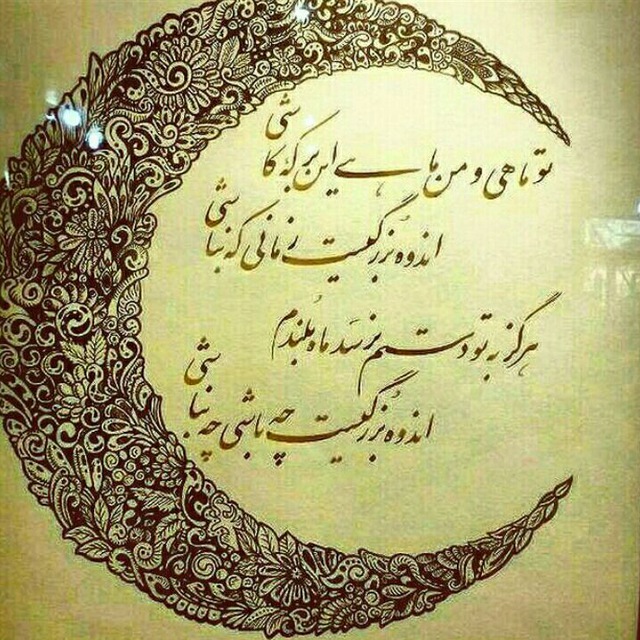 تو ماهی و من ماهیِ این برکهٔ کاشی
اندوه بزرگیست زمانی که نباشی
هرگز به تو دستم نرسد ماه بلندم
اندوه بزرگیست چه باشی چه نباشی